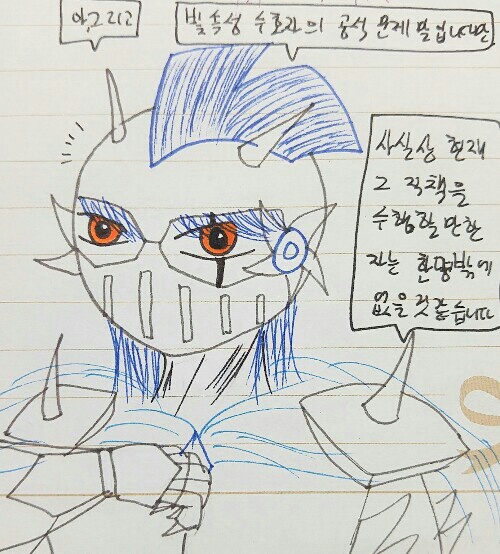 아,그리고
빛속성 수호자의 공석 문제 말입니다만
사실상 현재
그 직책을
수행할 만한
자는 한명밖에
없을 것 같습니다